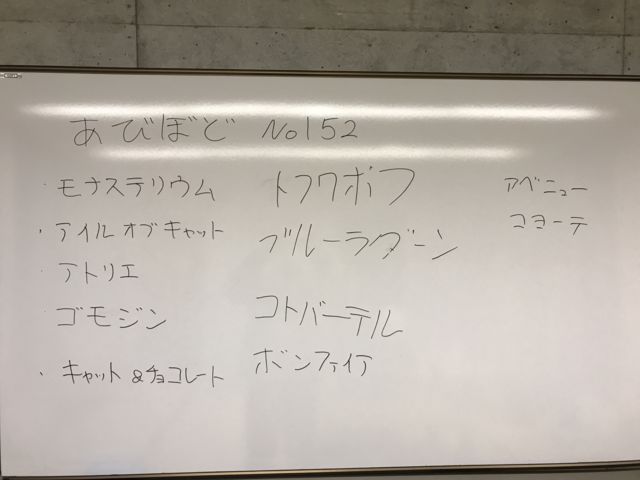 あびぼど No152
・モナステリウム
・アイルオブキャット
・アトリエ
ゴモジン
・キャット&チョコレート
トフワボフ
ブルーラグーン
コトバーテル
ボンファイア
アベニュー
コヨーテ